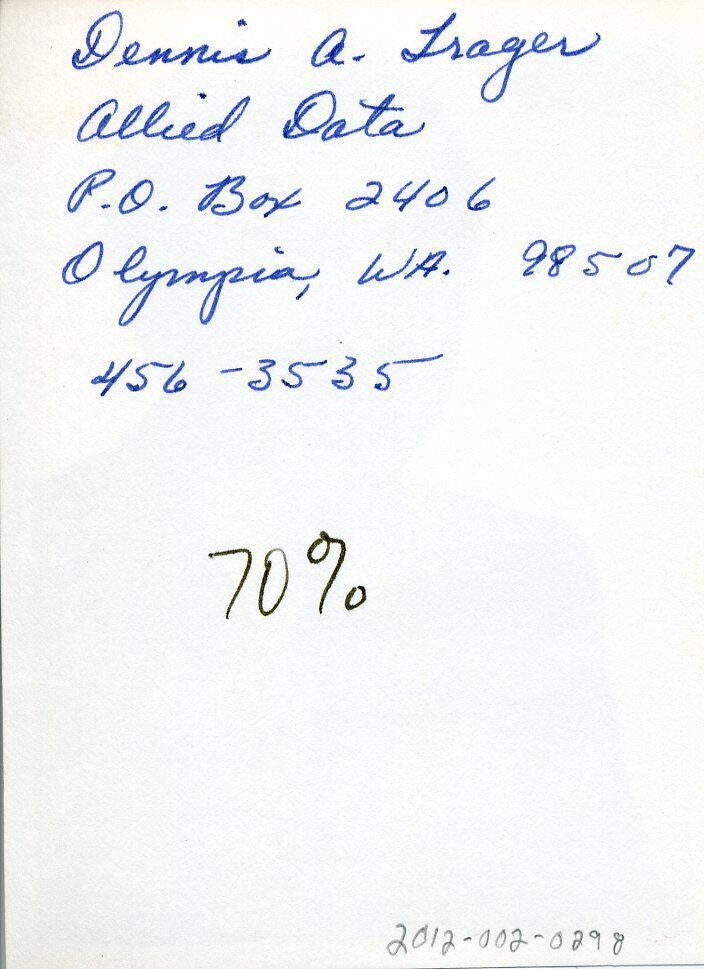 Dennis A. Trager
Allied Data
P.O. Box 2406
Olympia, WA. 98507
456-3535
70%
2012-002-0298